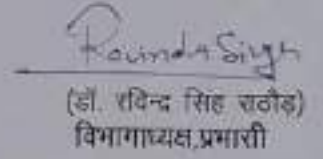 Ravinder Singh
(डॉ. रविन्द्र सिंह राठौड़)
विभागाध्यक्ष प्रभारी